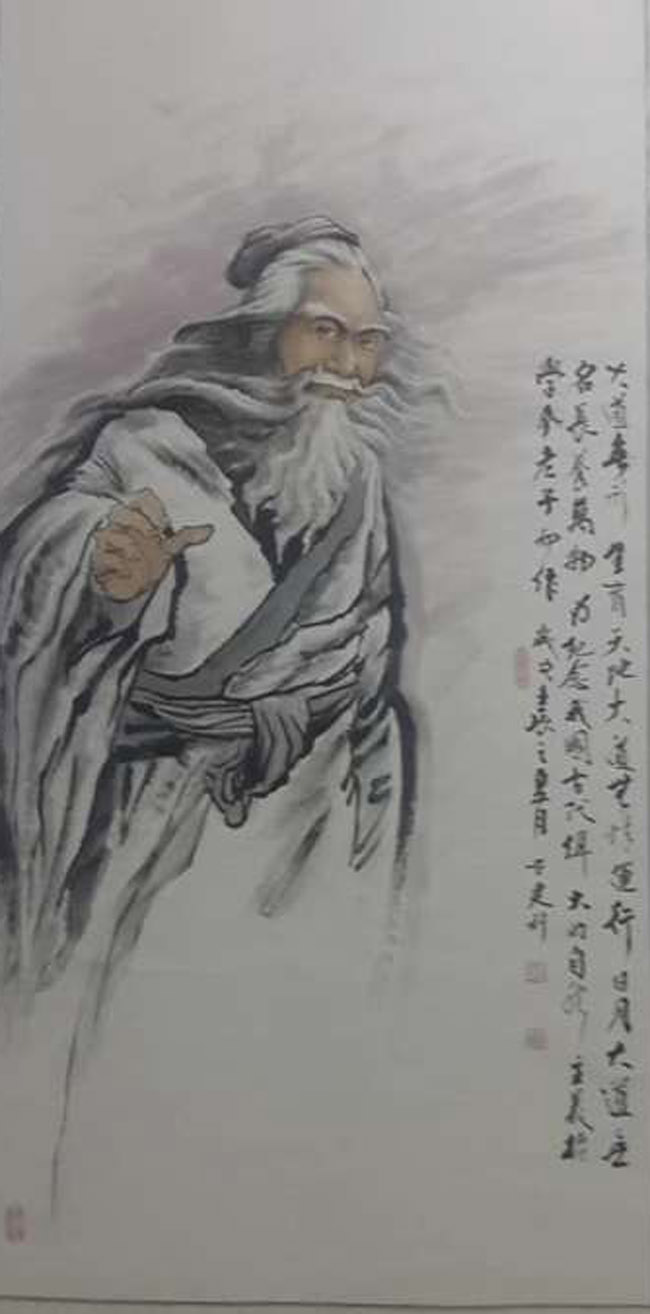 大道無形 生育天地 大道無情 運行日月 大道無
名 長養萬物 为紀念我國古代伟大的自然主義哲
學家老子而作